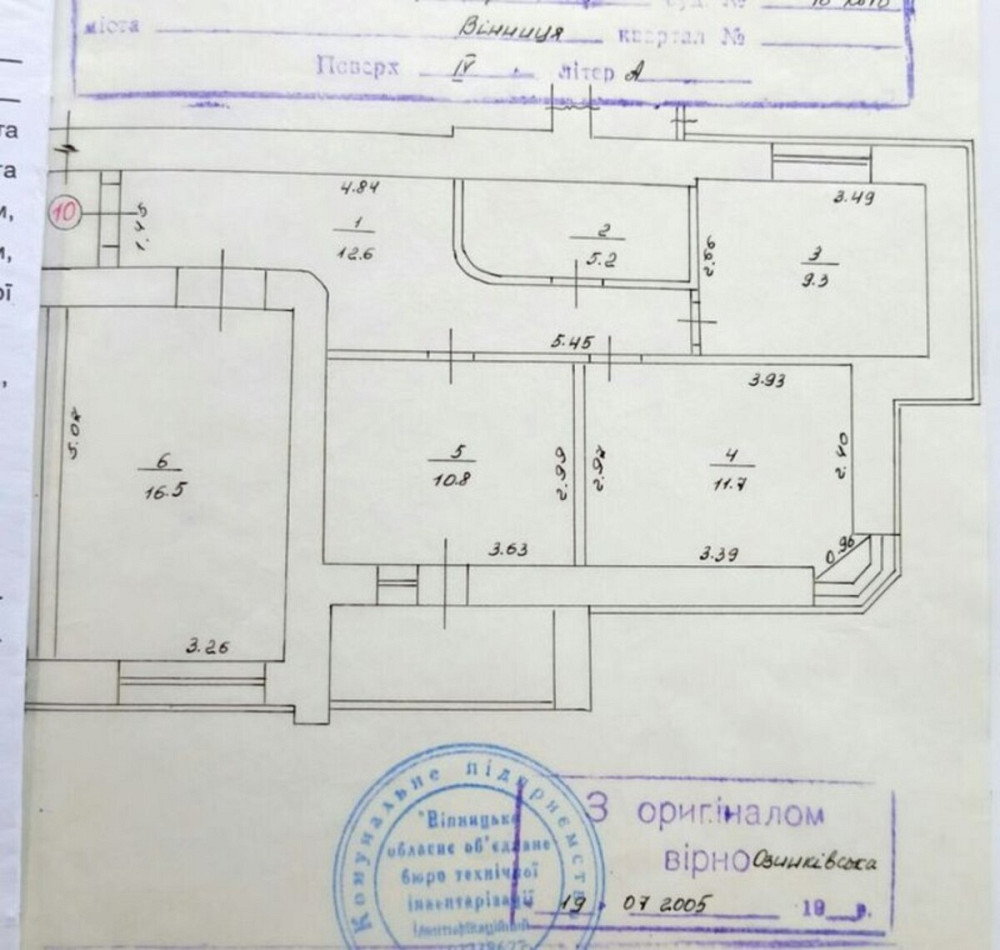 міста Вінниця квартал №
Поверх IV літер А
та
та
и,
и,
ої
,
10
1.45
4.84
1
12.6
2
5.2
2.66
3.49
3
9.3
5.45
3.93
5.07
6
16.5
5
10.8
2.99
2.97
4
11.7
2.40
3.63
3.39
0.96
3.26
Комунальне підприємств
"Вінницьке
обласне об'єднане
бюро технічної
інвентаризації
Ідентифікаційний
З оригіналом
вірно Озинківська
19 07 2005 19 р.